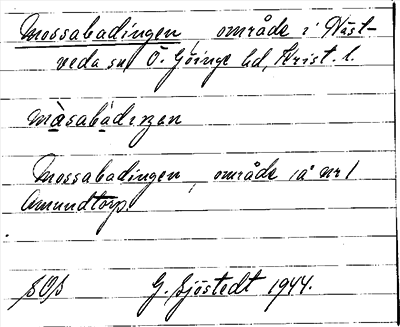 Mossabadingen, område i Näst-
veda sn, Ö. Göinge hd, Krist. l.
màsabádeŋen
Mossabadingen, område å nr 1
Amundtorp.
SOS G. Sjöstedt 1944.